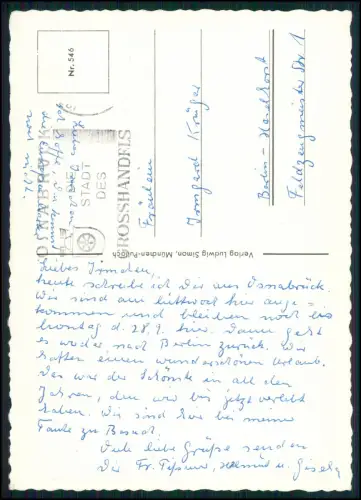 Nr. 546
OSNABRÜCK
DIE
STADT
DES
GROSSHANDELS
Fräulein
Irmgard Krüger
Berlin - Karlshorst
Feldzeugmeister Str. 1
Verlag Ludwig Simon, München-Pullach
Liebes Irmchen,
heute schreibe ich Dir aus Osnabrück.
Wir sind am Mittwoch hier ange=
kommen und bleiben noch bis
Montag d. 28.9. hier. Dann geht
es wieder nach Berlin zurück. Wir
hatten einen wunderschönen Urlaub.
Das war der Schönste in all den
Jahren, den wir bis jetzt verlebt
haben. Wir sind hier bei meiner
Tante zu Besuch.
Viele liebe Grüße senden
Dir Fr. Helmut u. Gisela